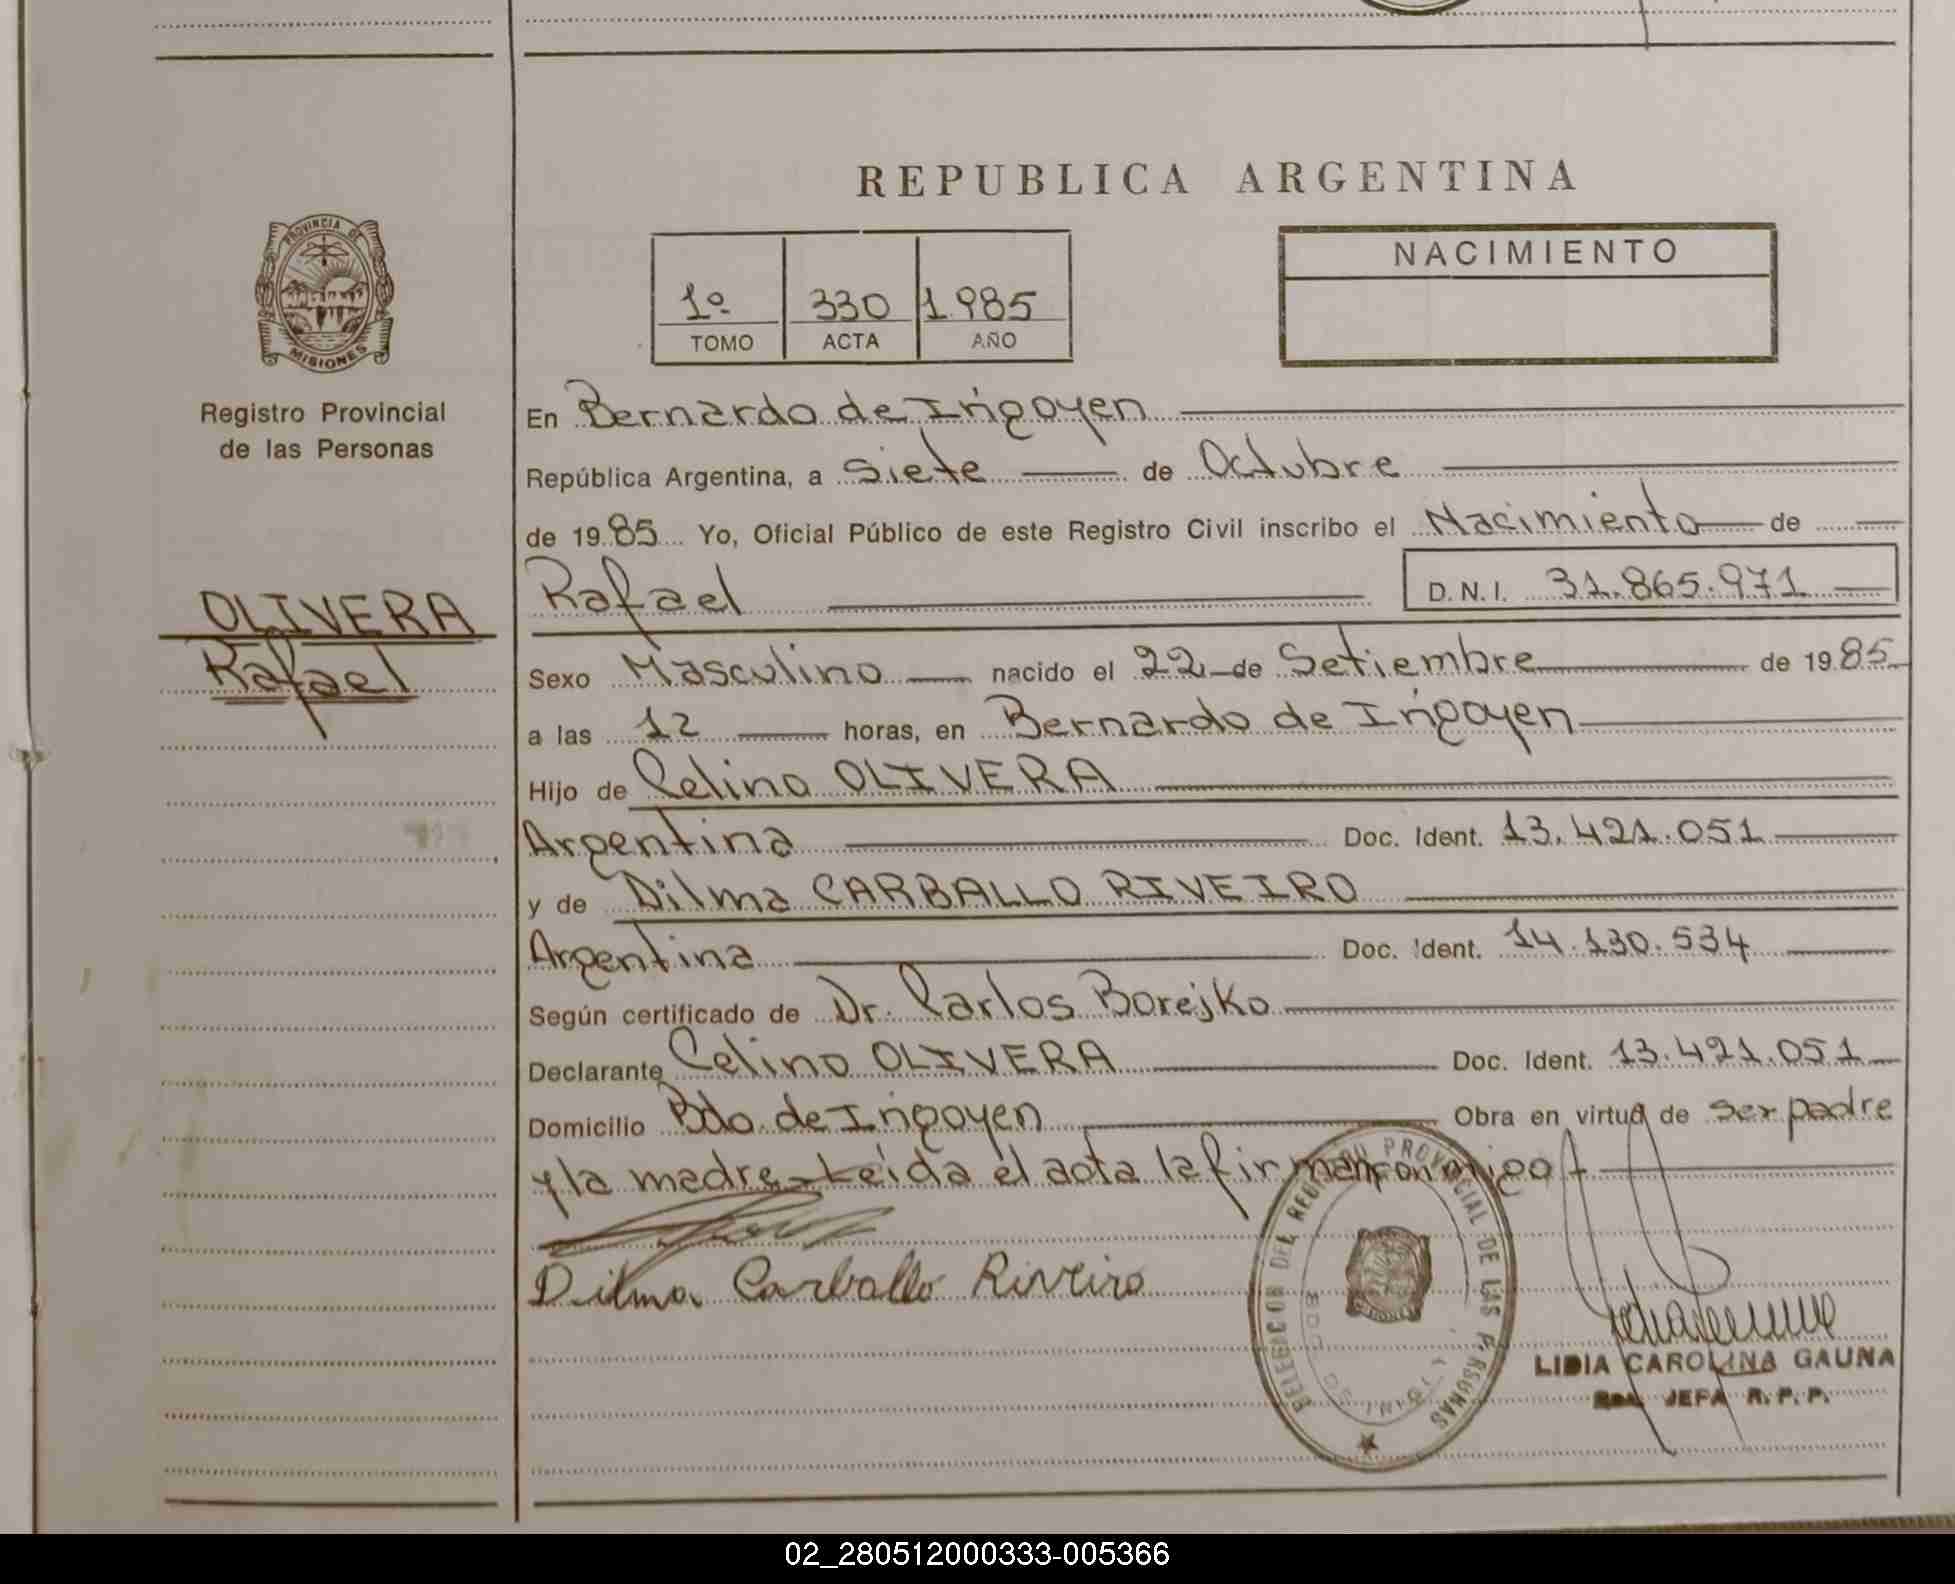 REPUBLICA ARGENTINA
PROVINCIA DE
MISIONES
NACIMIENTO
1º 330 1.985
TOMO ACTA AÑO
Registro Provincial
de las Personas
En Bernardo de Irigoyen
República Argentina, a siete de Octubre
de 1985 Yo, Oficial Público de este Registro Civil inscribo el Nacimiento de
Rafael D.N.I. 31.865.971
OLIVERA
Rafael
Sexo Masculino nacido el 22 de Setiembre de 1985
a las 12 horas, en Bernardo de Irigoyen
Hijo de Celino OLIVERA
Argentina Doc. Ident. 13.421.051
y de Dilma CARBALLO RIVEIRO
Argentina Doc. Ident. 14.130.534
Según certificado de Dr. Carlos Borejko
Declarante Celino OLIVERA Doc. Ident. 13.421.051
Domicilio Bdo de Irigoyen Obra en virtud de ser padre
y la madre - Leída el acta la firman conmigo
Dilma Carballo Riveiro
DELEGACION DEL REGISTRO PROVINCIAL DE LAS PERSONAS
LIDIA CAROLINA GAUNA
JEFA R.P.P.
02_280512000333-005366